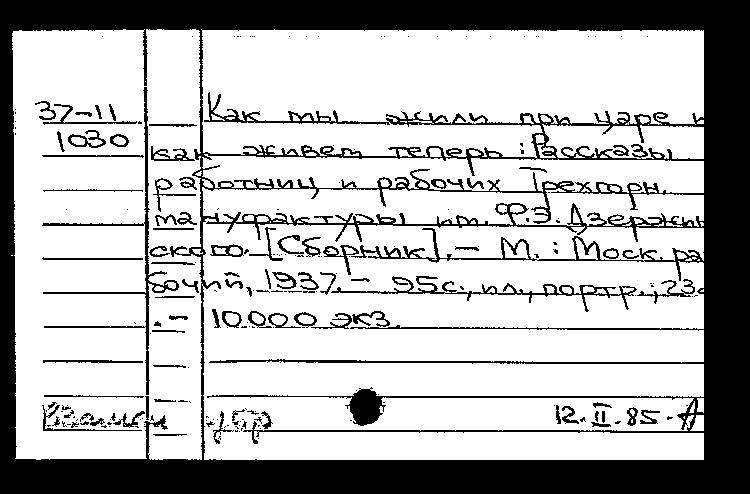 37-11 Как мы жили при царе и
1030 как живем теперь: Рассказы
работниц и рабочих Трехгорн.
мануфактуры им. Ф.Э. Дзержин
ского. [Сборник]. - М.: Моск. ра
бочий, 1937. - 95с., ил., портр.; 23с
. - 10000 экз.
Взамен 12.II.85.